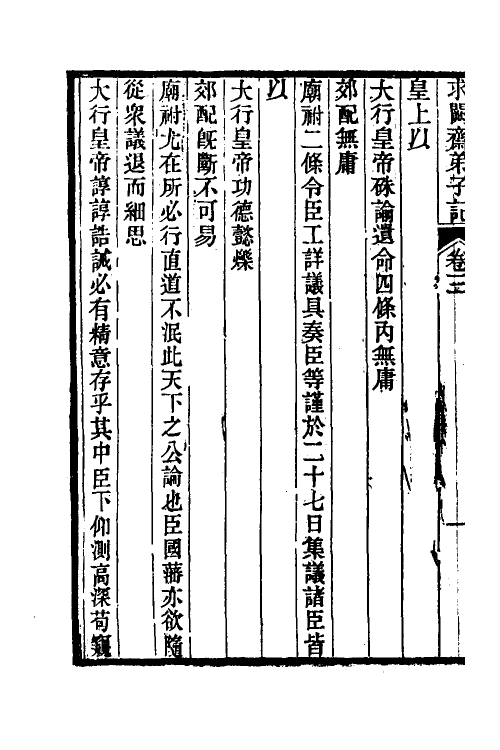 求闕齋弟子記
卷三
皇上以
大行皇帝硃諭遺命四條內無庸
郊配無庸
廟祔二條令臣工詳議具奏臣等謹於二十七日集議諸臣皆
以
大行皇帝功德懿爍
郊配旣斷不可易
廟祔尤在所必行直道不泯此天下之公論也臣國藩亦欲隨
從衆議退而細思
大行皇帝諄諄誥誡必有精意存乎其中臣下仰測高深苟窺